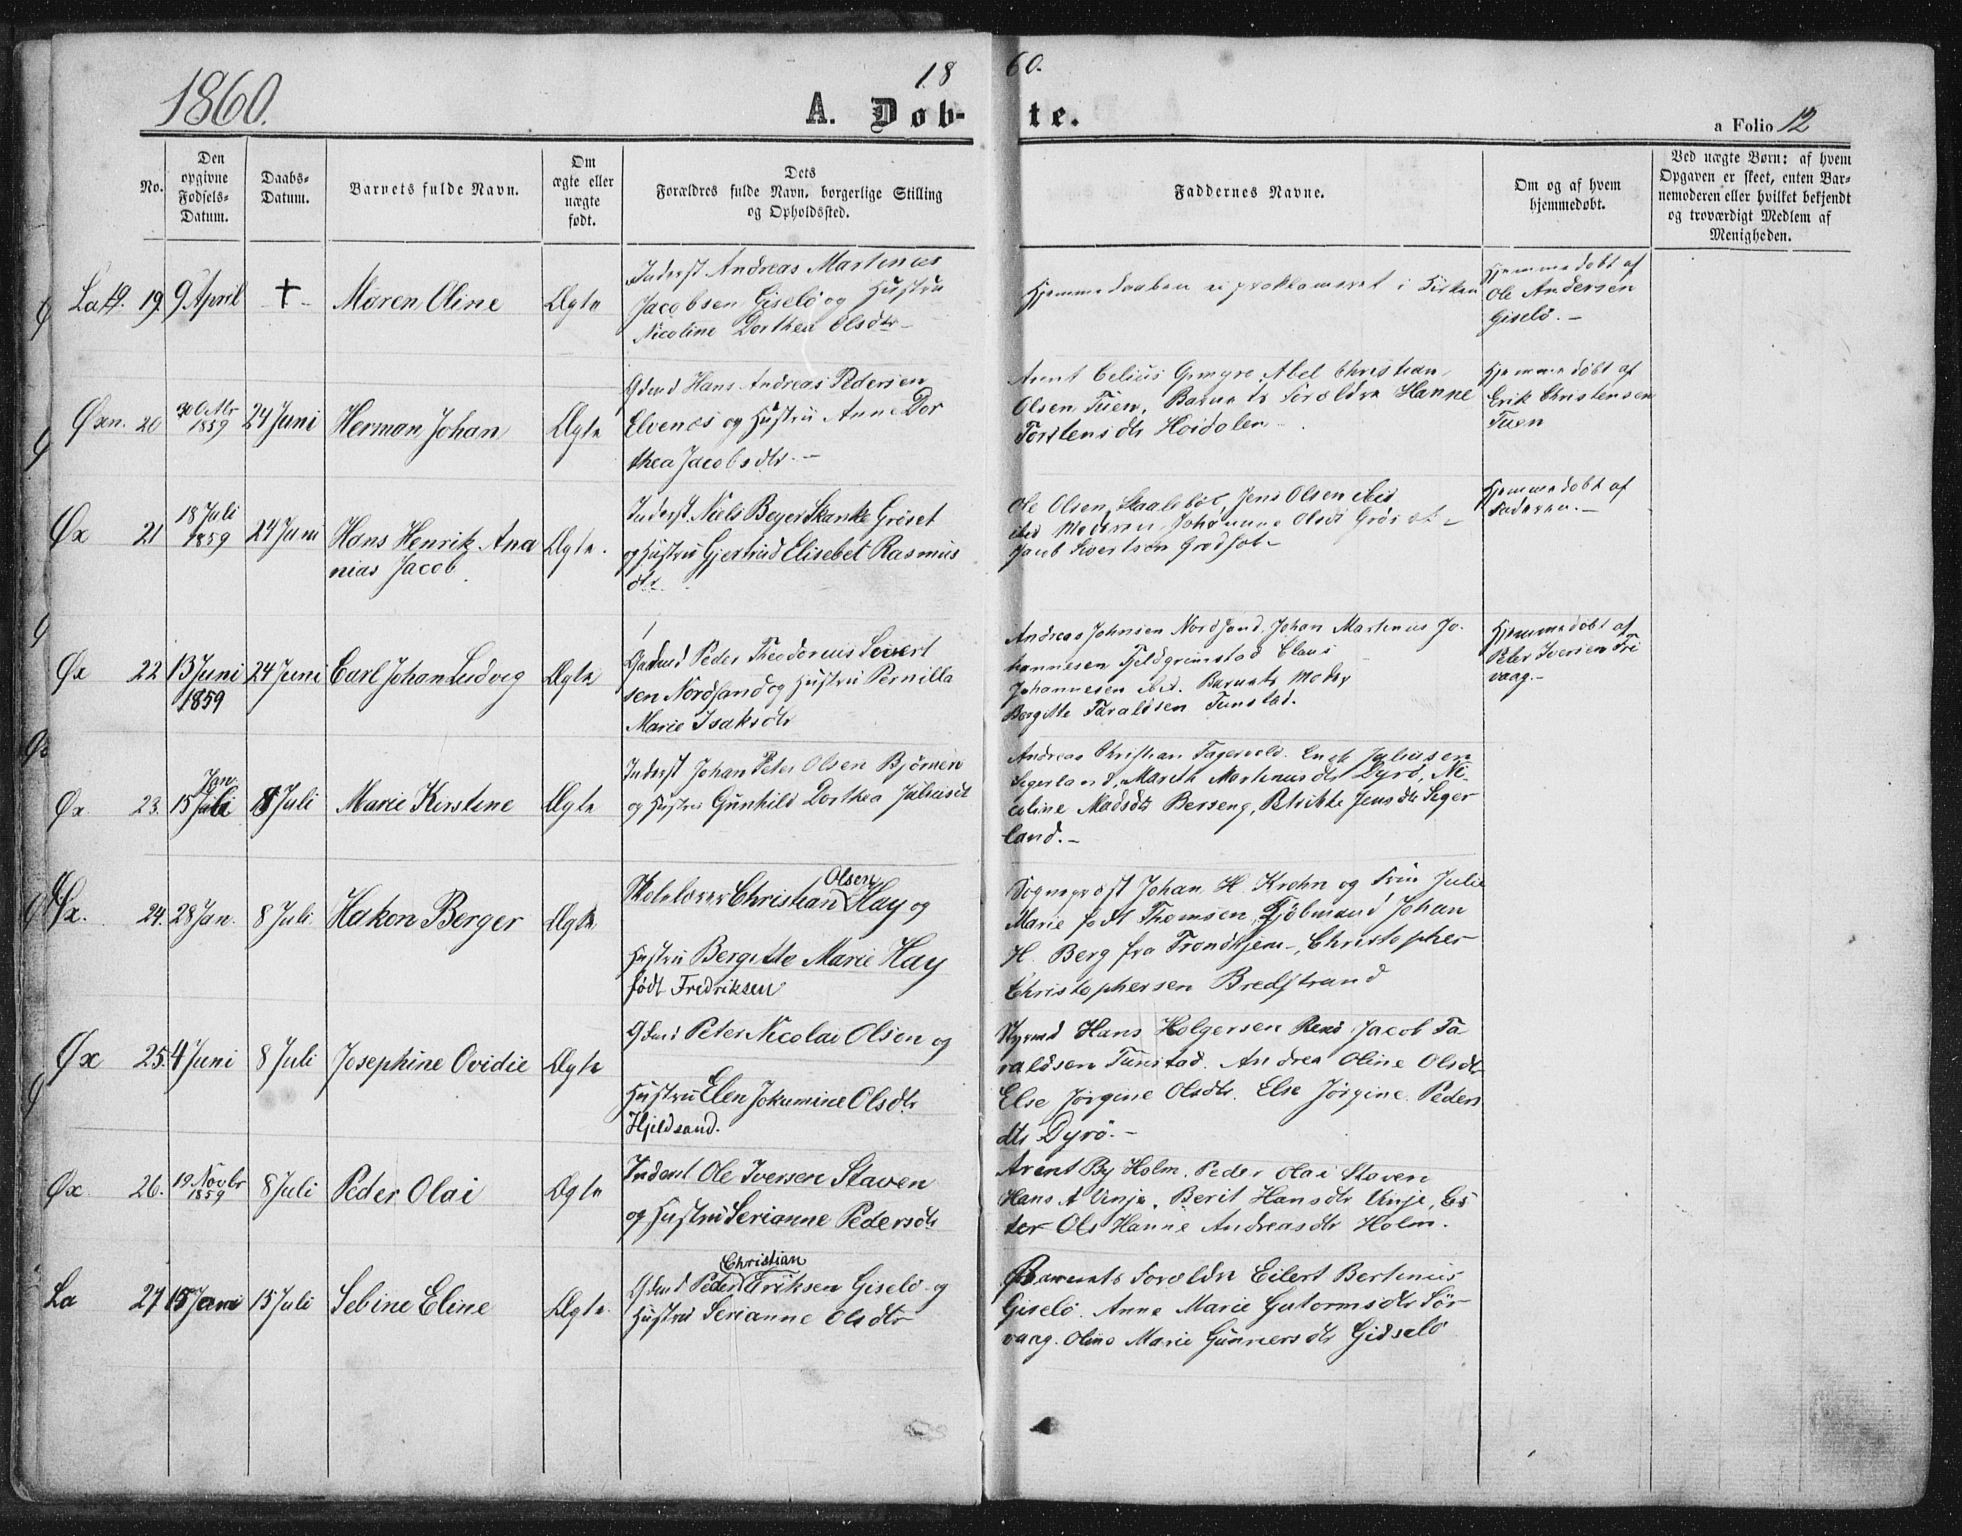 1860.
1860.
A. Døbte.
a Folio 12
No.
Den opgivne Fødsels-Datum.
Daabs-Datum.
Barnets fulde Navn.
Om ægte eller uægte født.
Dets Forældres fulde Navn, borgerlige Stilling og Opholdssted.
Faddernes Navne.
Om og af hvem hjemmedøbt.
Ved uægte Børn: af hvem Opgaven er skeet, enten Barnemoderen eller hvilket bekjendt og troværdigt Medlem af Menigheden.
La 19. 19. 9. April + Maren Oline Ægte
Inderst Andreas Martinus
Jacobsen Giselö og Hustru
Nicoline Dorthea Olsdtr
Hjemmedaaben ei proklameret i Kirken
Hjemmedøbt af
Ole Andersen
Giselö.
Øxn. 20 30 Octbr 1859 24 Juni Herman Johan Ægte
Gdmd Hans Andreas Pedersen
Elvenæs og Hustru Anne Dor
thea Jacobsdtr.
Olsen Tuen, Barnets Forældre Hanne
Hjemmedøbt af
Erik Christensen
Tuen
Øx 21 18 Juli 1859 24 Juni Hans Henrik Ana
nias Jacob Ægte.
Inderst Niels Beyer Skanke Grøset
og Hustru Gjertrud Elisebet Rasmus
dtr.
Ole Olsen Jens Olsen ibid
ibid Moderen, Johanne Olsdt
Jacob Sivertsen
Hjemmedøbt af
Faderen.
Øx 22 13 Juni 1859 24 Juni Carl Johan Ludvig Ægte
Gaardmd Peder Theodorius Sivert
sen Nordsand og Hustru Pernilla
Marie Isaksdtr
Andreas Johnsen Nordsand, Johan Martinus Jo-
hannesen Fjeldgrimstad Claus
Johannesen ibid. Barnets Moder
Bergitte Taraldsen Tunstad.
Hjemmedøbt af
Peter Iversen Fri
vaag.
Øx. 23. 15 Jan. Juli 8 Juli Marie Kirstine Ægte
Inderst Johan Peter Olsen Bjørnen
og Hustru Gunhild Dorthea Juliusdt
Andreas Christian Fagervold. Juliusen
Segerland, Marith Martinusdtr Dyrö, Ni-
coline Madsdtr Berseng, Petrikke Jensdtr Seger
land.
Øx. 24. 28 Jan. 8 Juli Hakon Berger Ægte
Skolelærer Christian Olsen Hay og
Hustru Bergitte Marie Hay
født Fredriksen
Sognepræst Johan H. Krohn og Frue Julie
Marie født Thomsen, Kjöbmand Johan
H. Berg fra Trondhjem, Christopher
Christophersen Bredstrand
Øx 25. 4 Juni 8 Juli Josephine Ovidie Ægte
Gdmd Peter Nicolai Olsen og
Hustru Elen Jokumine Olsdtr
Hjeldsand.
Styrmd Hans Holgersen Jacob Ta-
raldsen Tunstad. Andrea Oline Olsdtr
Else Jørgine Olsdtr. Else Jørgine Peders
dtr Dyrö.
Øx. 26. 19 Novbr 1859 8 Juli Peder Olai Ægte
Inderst Ole Iversen Staven
og Hustru Serianne Pedersdtr
Arent By Holm. Peder Olai Staven
Hans A Vinje. Berit Hansdtr Vinje, Es
ter Ols Hanne Andreasdtr Holm.
La 27 15 Juni 15 Juli Sebine Eline Ægte
Gdmd Peder Christian Eriksen Giselö og
Hustru Serianne Olsdtr
Barnets Forældre Eilert Bertinus
Giselö. Anne Marie Gutormsdtr Sör
vaag. Oline Marie Gunnersdtr Gidselö